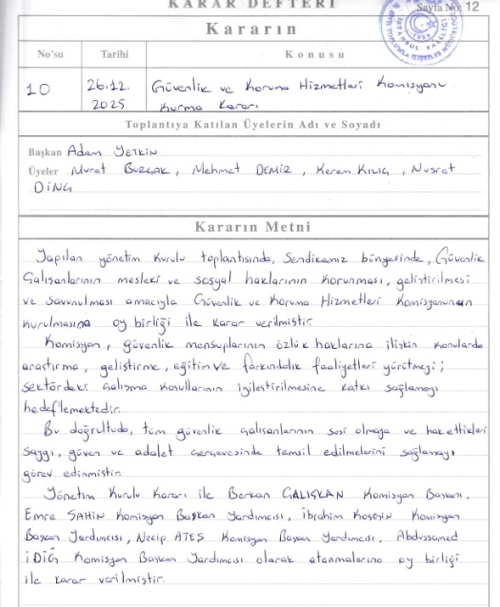 KARAR DEFTERİ
Sayfa No: 12
Kararın
No'su
Tarihi
Konusu
10
26.12.
2025
Güvenlik ve Koruma Hizmetleri Komisyonu
Kurma Kararı
Toplantıya Katılan Üyelerin Adı ve Soyadı
Başkan Adem YETKİN
Üyeler Murat BURÇAK, Mehmet DEMİR, Kerem KILIÇ, Nusrat
DİNÇ
Kararın Metni
Yapılan yönetim kurulu toplantısında, Sendikamız bünyesinde, Güvenlik
Çalışanlarının mesleki ve sosyal haklarının korunması, geliştirilmesi
ve savunulması amacıyla Güvenlik ve Koruma Hizmetleri Komisyonunun
kurulmasına oy birliği ile karar verilmiştir.
Komisyon, güvenlik mensuplarının özlük haklarına ilişkin konularda
araştırma, geliştirme, eğitim ve farkındalık faaliyetleri yürütmeyi;
sektördeki çalışma koşullarının iyileştirilmesine katkı sağlamayı
hedeflemektedir.
Bu doğrultuda, tüm güvenlik çalışanlarının sesi olmaya ve hak ettikleri
saygı, güven ve adalet çerçevesinde temsil edilmelerini sağlamayı
görev edinmiştir.
Yönetim Kurulu Kararı ile Berkan ÇALIŞKAN Komisyon Başkanı,
Emre ŞAHİN Komisyon Başkan Yardımcısı, İbrahim Komisyon
Başkan Yardımcısı, Necip ATEŞ Komisyon Başkan Yardımcısı, Abdussamed
İDİĞ Komisyon Başkan Yardımcısı olarak atanmalarına oy birliği
ile karar verilmiştir.